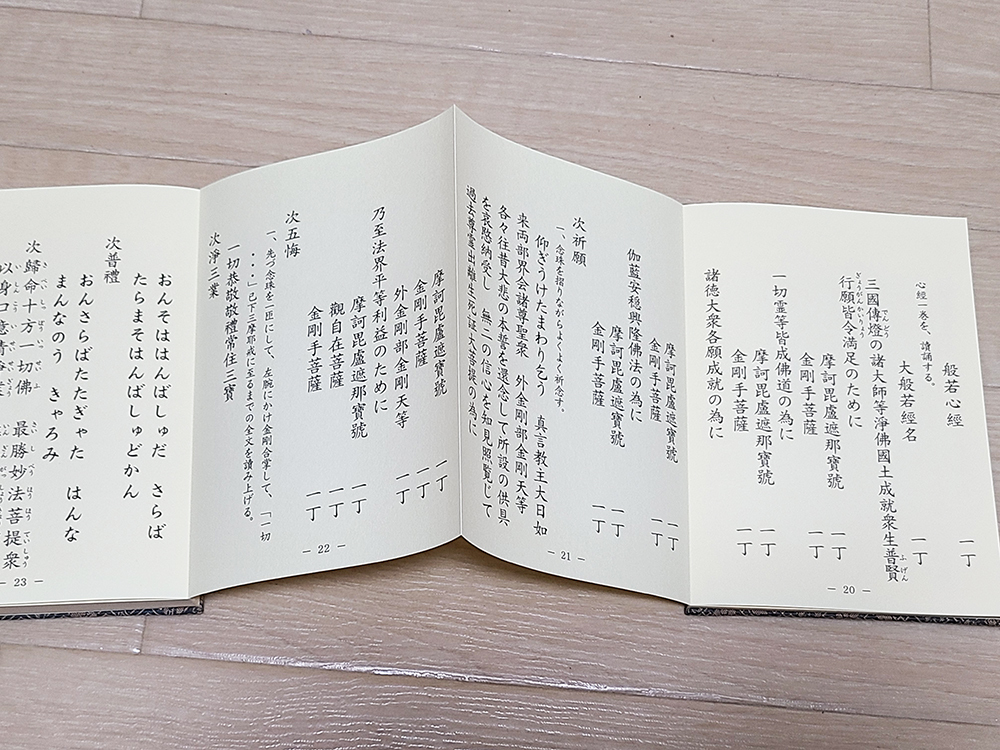 般若心經 一丁
心經一巻を、讀誦する。
大般若經名 一丁
三國傳燈の諸大師等淨佛國土成就衆生普賢
でんどう
ふげん
行願皆令滿足のために
ぎょうがんかいりょう
摩訶毘盧遮那寶號 一丁
金剛手菩薩 一丁
一切霊等皆成佛道の為に
摩訶毘盧遮那寶號 一丁
金剛手菩薩 一丁
諸徳大衆各願成就の為に
－ 20 －
摩訶毘盧遮寶號 一丁
金剛手菩薩 一丁
伽藍安穏興隆佛法の為に
摩訶毘盧遮寶號 一丁
金剛手菩薩 一丁
次祈願
一、念珠を摺りながらよくよく祈念す。
仰ぎうけたまわりをう 真言教主大日如
来両部界会諸尊聖衆 外金剛部金剛天等
各々往昔大悲の本誓を還念して所設の供具
を哀愍納受し 無二の信心を知見照覧じて
過去尊霊出離生死証大菩提の為に
－ 21 －
摩訶毘盧遮寶號 一丁
金剛手菩薩 一丁
外金剛部金剛天等 一丁
乃至法界平等利益のために
摩訶毘盧遮那寶號 一丁
觀自在菩薩 一丁
金剛手菩薩 一丁
次五悔
一、先づ念珠を一匝にして、左腕にかけ金剛合掌して、「一切
・・・」已下三摩耶戒に至るまでの全文を讀み上げる。
一切恭敬敬禮常住三寶
次淨三業
－ 22 －
おんそははんばしゅだ さらば
たらまそはんばしゅどかん
次普禮
おんさらばたたぎゃた はんな
まんなのう きゃろみ
次歸命十方一切佛 最勝妙法菩提衆
き べい しっ ほう い せい ふ さい し べう はう はう てい しゅう
以身口意清
－ 23 －